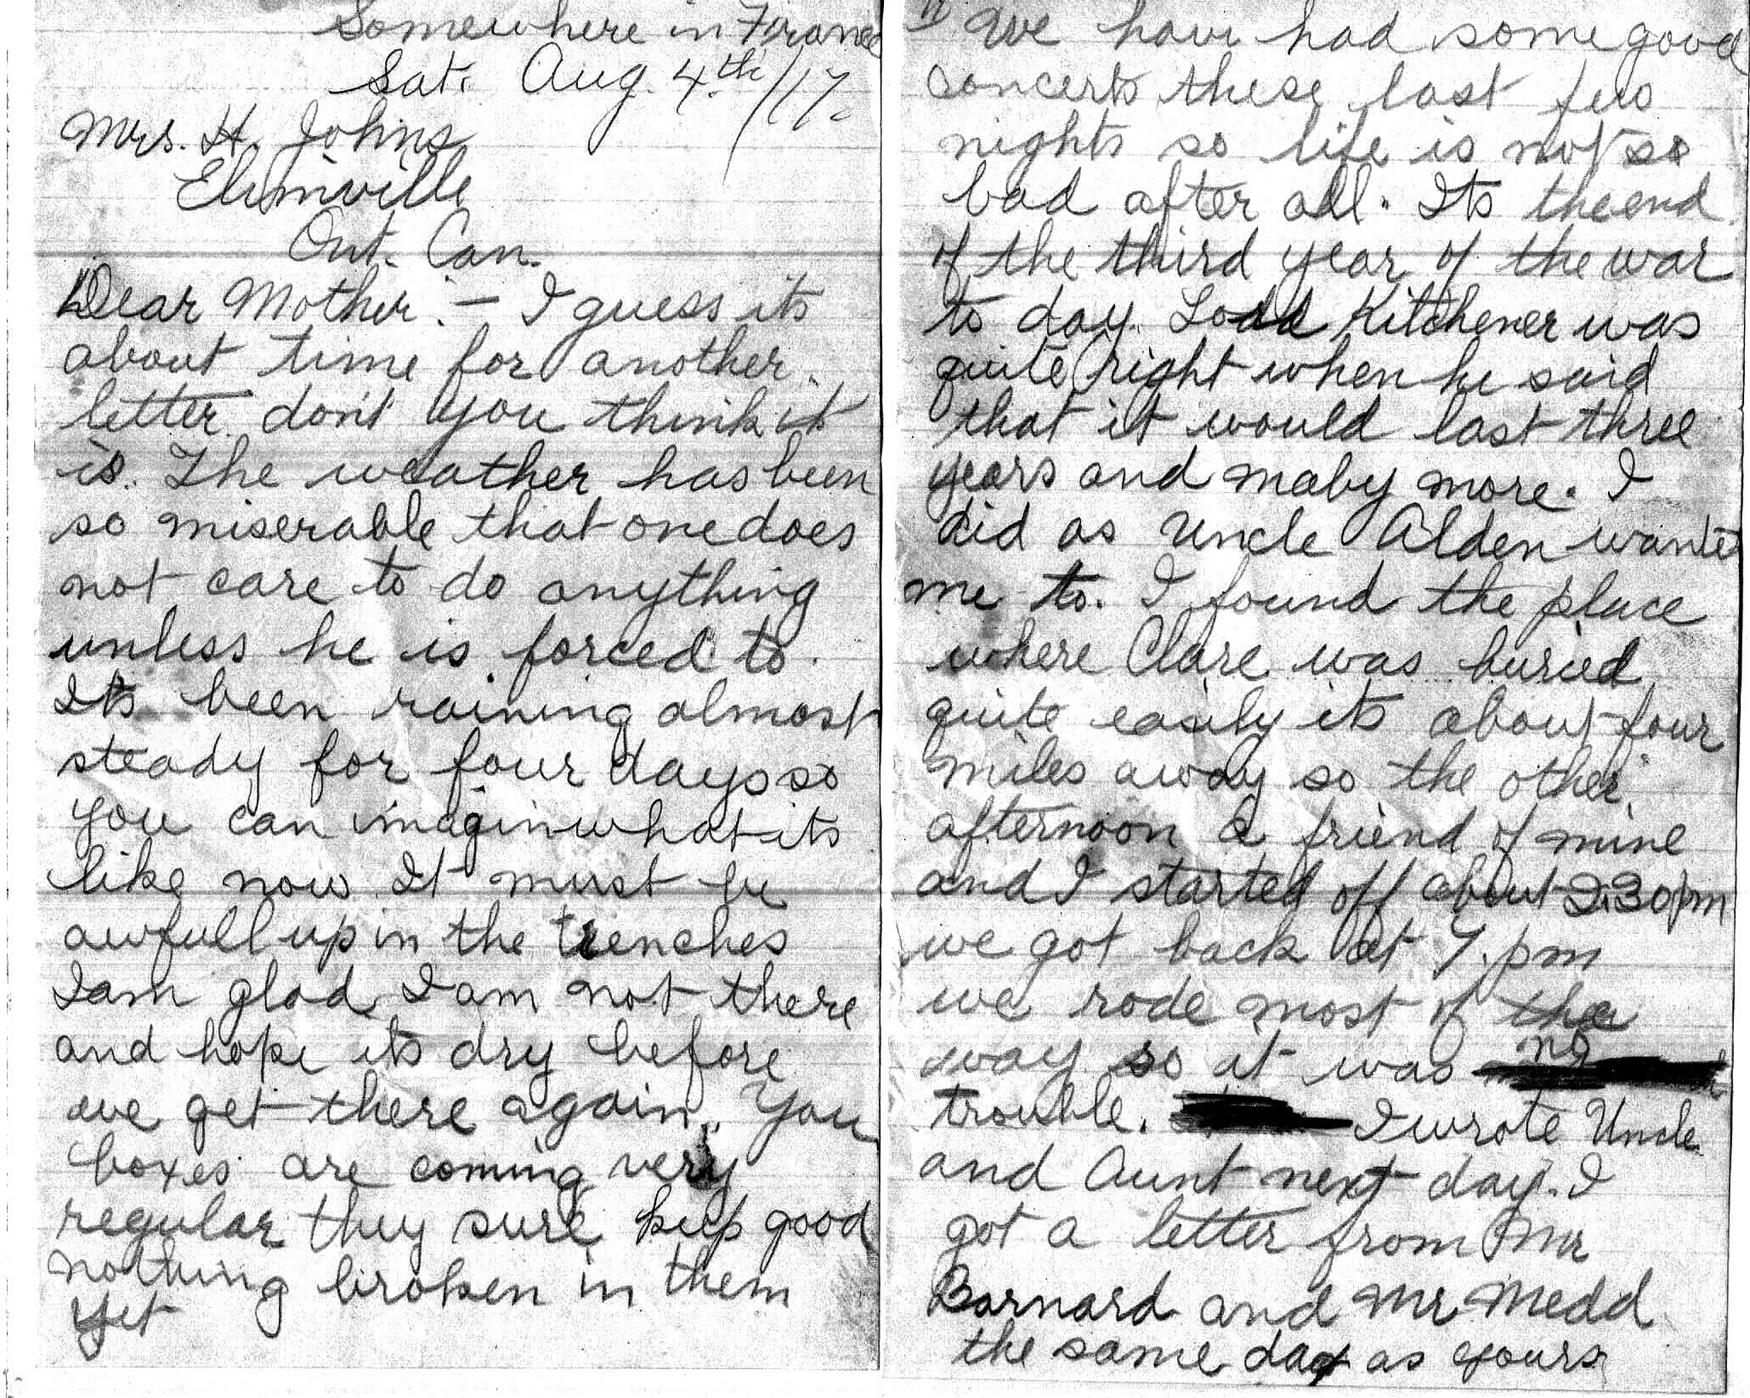 Somewhere in France
Sat. Aug. 4th /17.
Mrs. H. Johns
Elimville
Ont. Can.
Dear Mother. — I guess its
about time for another
letter dont you think it
is. The weather has been
so miserable that one does
not care to do anything
unless he is forced to.
Its been raining almost
steady for four days so
you can imagin what its
like now It must be
awfull up in the trenches
I am glad I am not there
and hope its dry before
we get there again. You
boxes are coming very
regular they sure keep good
nothing broken in them
yet
11 We have had some good
concerts these last few
nights so life is not so
bad after all. Its the end
of the third year of the war
to day. Lord Kitchener was
quite right when he said
that it would last three
years and maby more. I
did as Uncle Alden wanted
me to. I found the place
where Clare was buried
quite easily its about four
miles away so the other
afternoon a friend of mine
and I started off about 2.30 pm
we got back at 7. pm
we rode most of the
way so it was no
trouble. I wrote Uncle
and Aunt next day. I
got a letter from Mr
Barnard and Mr Medd
the same day as yours